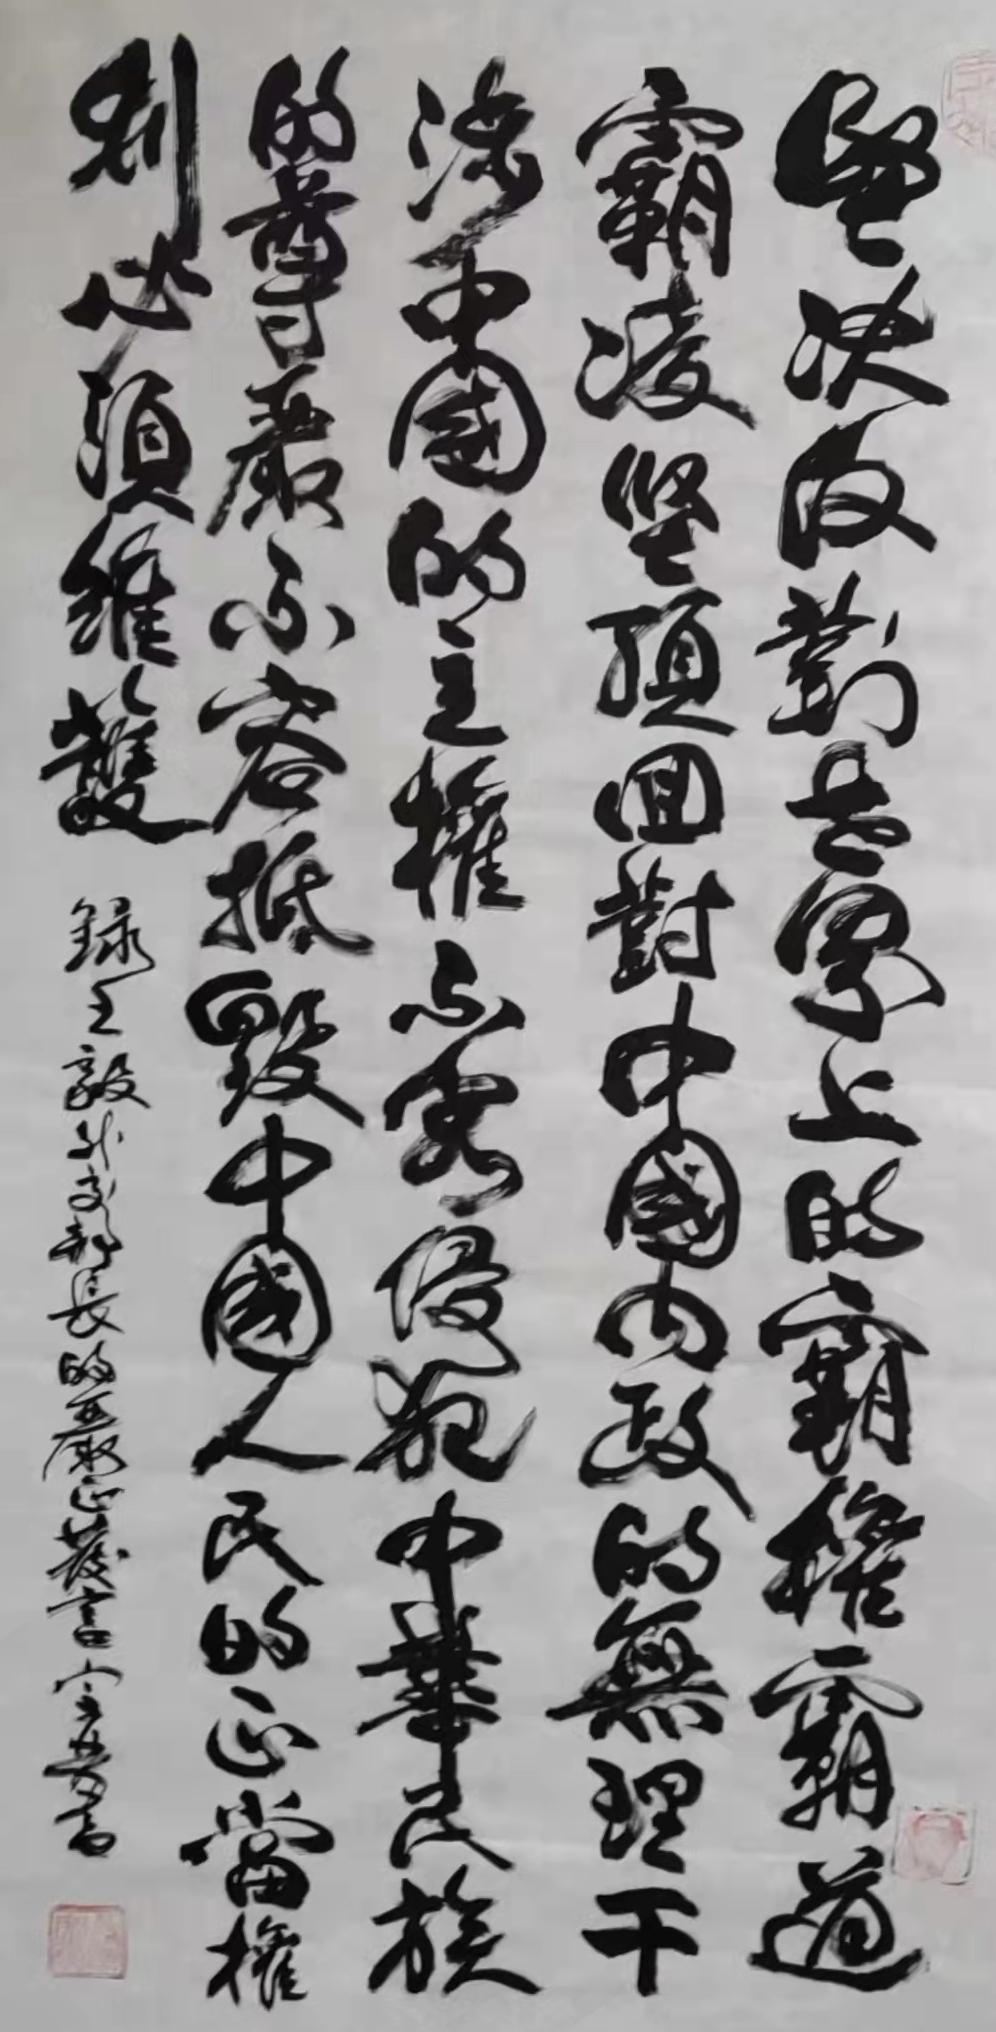 坚决反對在字上的霸權霸道
霸凌坚决回對中國内政的無理干
涉中國的主權不容侵犯中華民族
的尊嚴不容抵毀中國人民的正當權
利必須維護
録王毅外交部長的嚴正發言